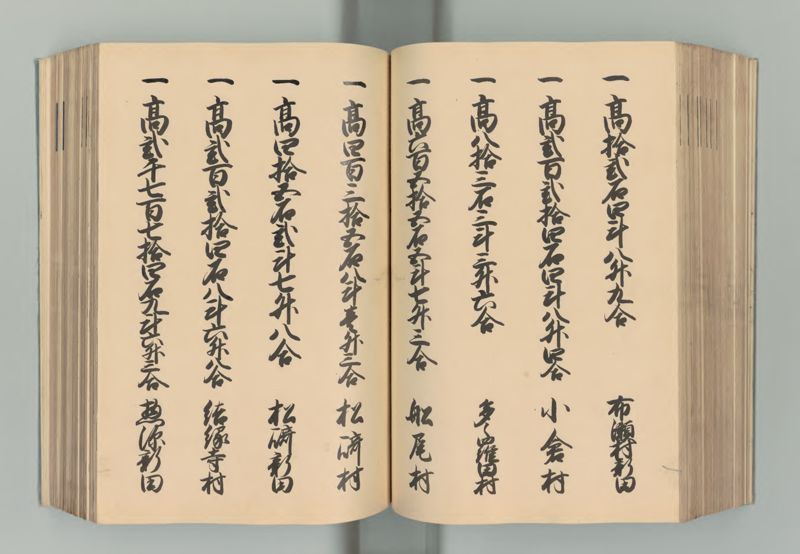 一高拾弐石四斗八升九合 布瀬村新田
一高弐百弐拾四石四斗八升四合 小倉村
一高八拾三石三斗三升六合 多々羅田村
一高六百五拾五石五斗七升三合 船尾村
一高四百三拾五石八斗壱升三合 松崎村
一高四拾五石弐斗七升八合 松崎新田
一高弐百弐拾四石八斗六升八合 結縁寺村
一高弐千七百七拾四石九斗六升三合 惣深新田